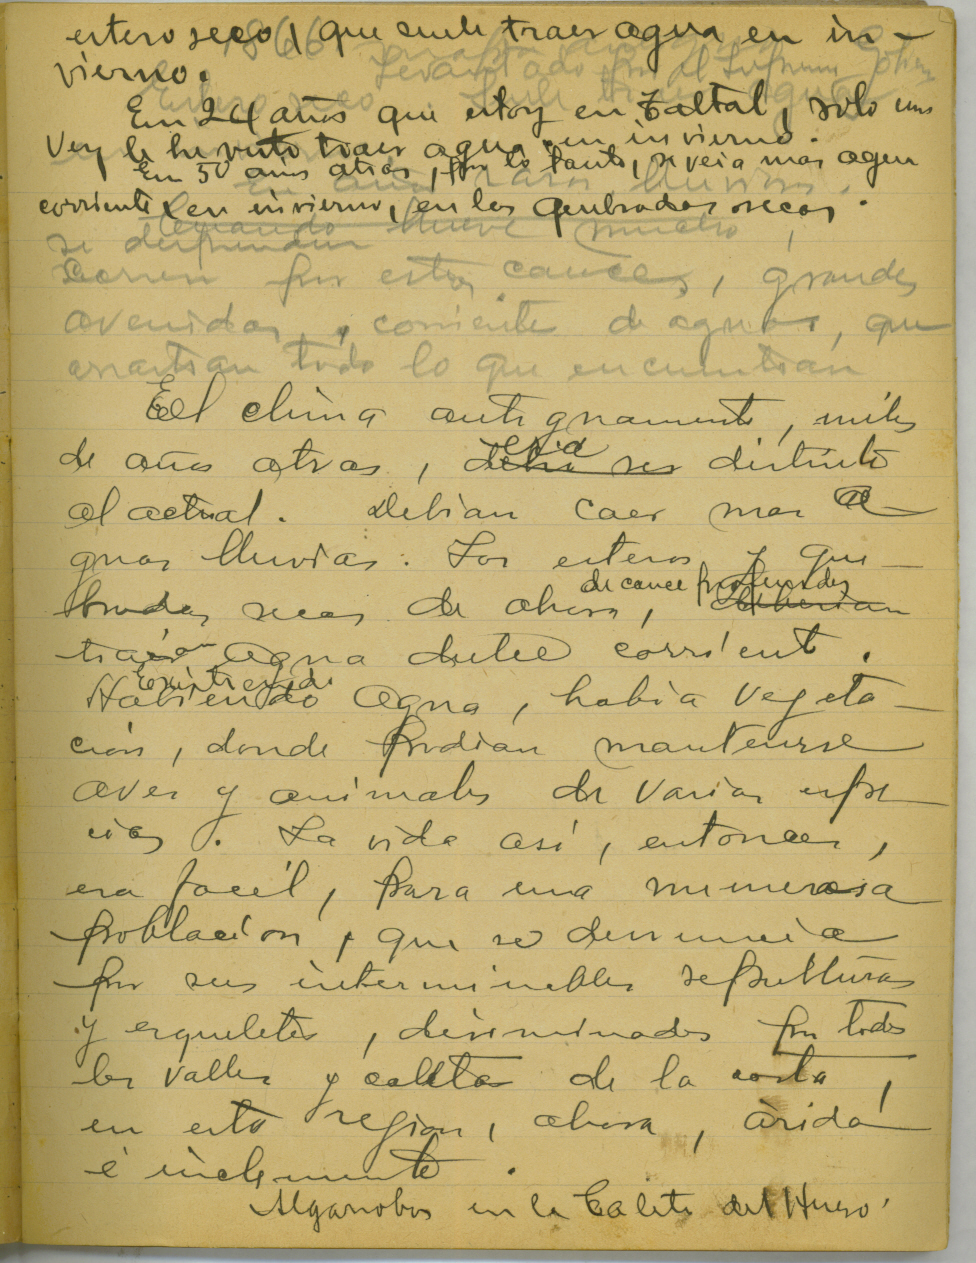 estero seco, que suele traer agua en in-
vierno.
En 24 años que estoy en Taltal, solo una
vez le he visto traer agua en invierno.
En 50 años atras, por lo tanto, se veia mas agua
corriente, en invierno, en las quebradas secas.
llueve mucho,
se desprenden
corren por estos cauces, grandes
avenidas, corriente de aguas, que
arrastran todo lo que encuentran
El clima antiguamente, miles
de años atras, era
debia ser distinto
al actual. Debian caer mas a
guas lluvias. Los esteros y que-
bradas secas de ahora, de cauce profundos
deberian
traian agua dulce corriente.
Existiendo
Habiendo agua, había vegeta-
cion, donde podian mantenerse
aves y animales de varias espe-
cies. La vida asi, entonces,
era facil, para una numerosa
poblacion, que se denuncia
por sus interminables sepulturas
y esqueletos, diseminados por todos
los valles y caletas de la costa,
en esta region, ahora, àrida
é inclemente.
Algarrobos en la Caleta del Hueso